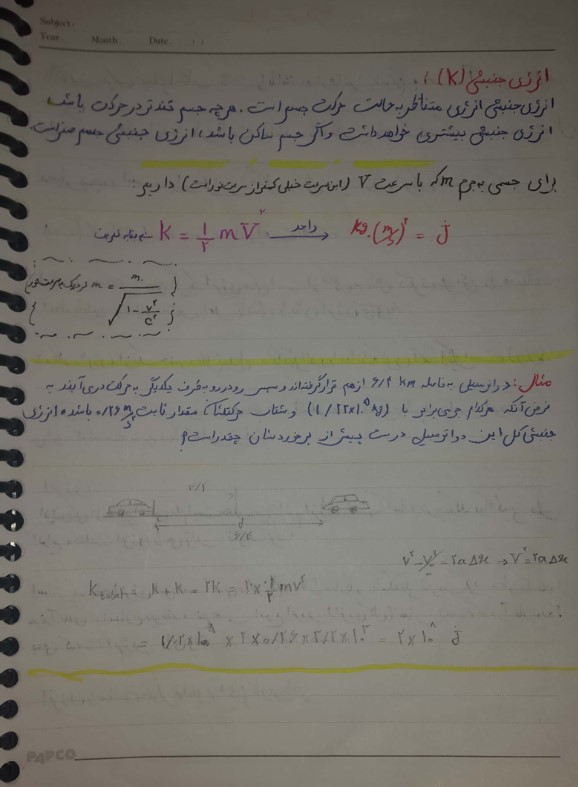 Subject:
Year Month Date
انرژی جنبشی (K):
انرژی جنبشی انرژی متناظر به حالت حرکت جسم است. هرچه جسم تندتر در حرکت باشد
انرژی جنبشی بیشتری خواهد داشت و اگر جسم ساکن باشد، انرژی جنبشی جسم صفر است.
برای جسمی به جرم m که با سرعت V (این سرعت خیلی کمتر از سرعت نور است) داریم:
K = ۱/۲ m V² واحد → kg.(m/s)² = j
m = m. / √(1 - v²/c²)
مثال: دو اتومبیل به فاصله ۶/۴ km از هم قرار گرفته‌اند و سپس رودررو به طرف یکدیگر به حرکت در می‌آیند به
فرض آنکه هرکدام جرمی برابر با (۱/۲۲×۱۰⁵ kg) و شتاب حرکتشان مقدار ثابت ۰/۲۶ m/s² باشد، انرژی
جنبشی کل این دو اتومبیل درست پیش از برخوردشان چقدر است؟
۳/۲
d
۶/۴
v² - v.² = ۲a Δx → V² = ۲a Δx
= K + K = ۲K = ۲ × ۱/۲ mv²
= ۱/۲۲×۱۰⁵ × ۲×۰/۲۶×۳/۲×۱۰³ = ۲×۱۰⁸ j
PAPCO